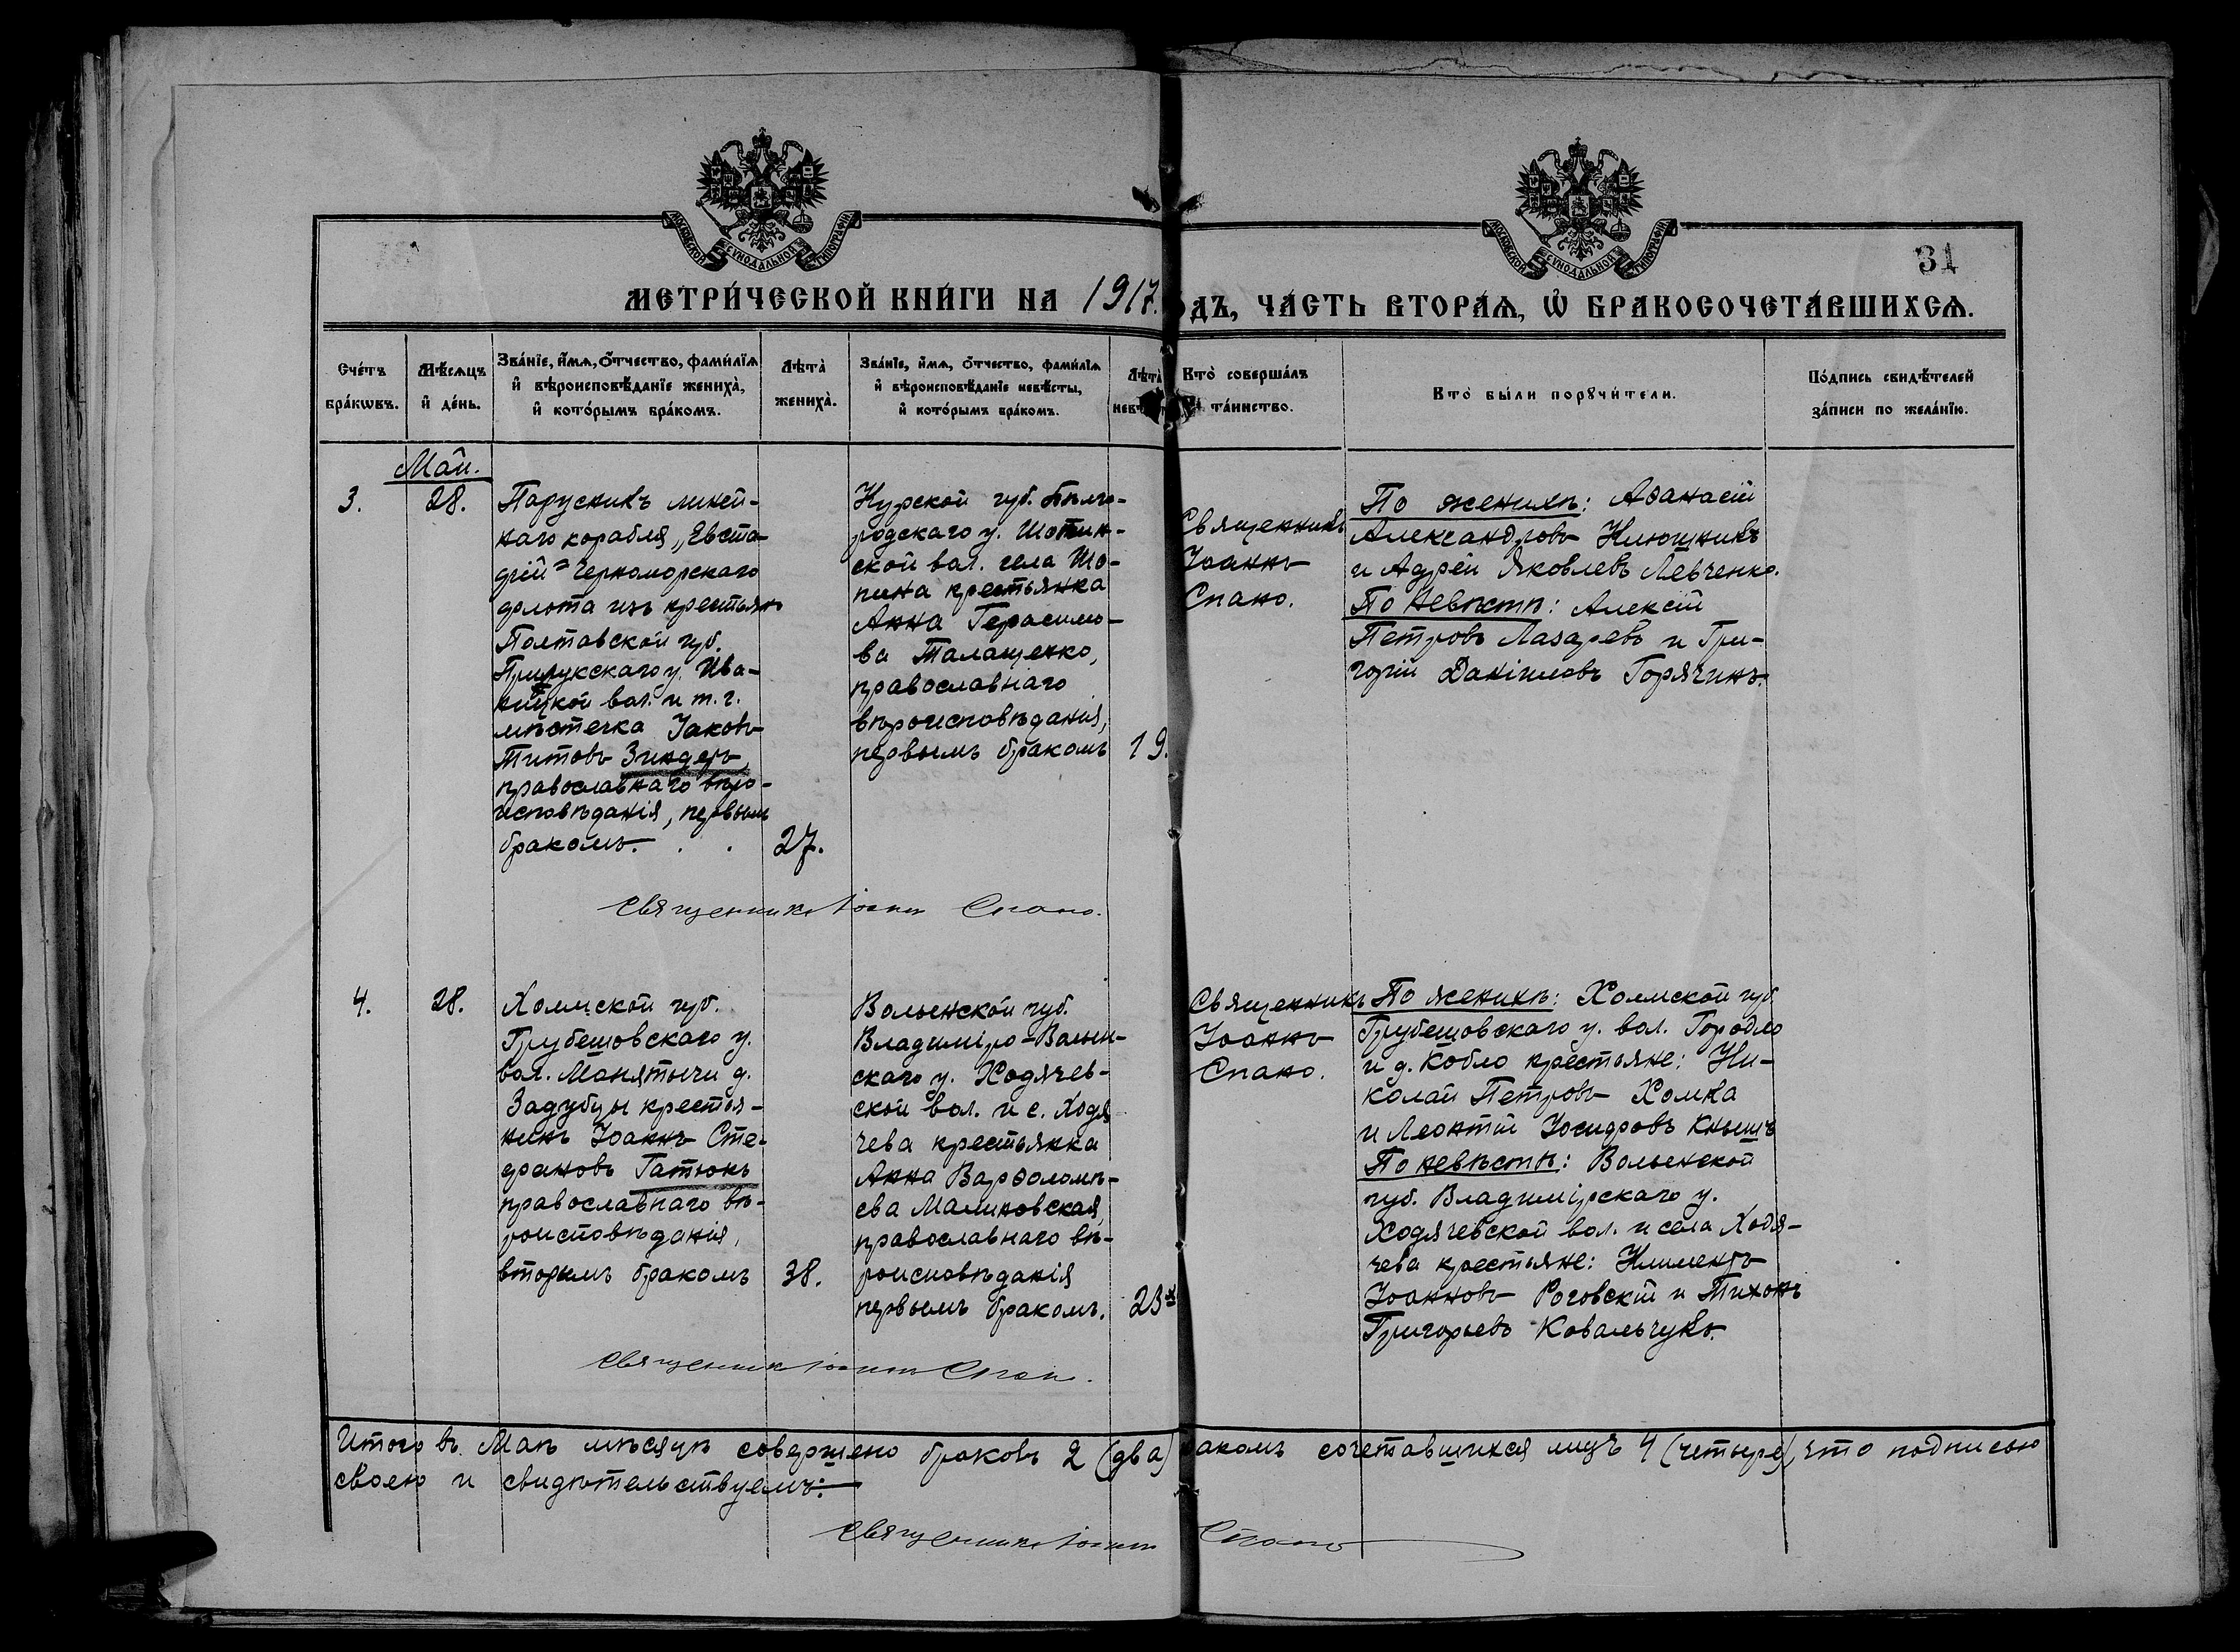 МОСКОВСКОЙ СѴНОДАЛЬНОЙ ТИПОГРАФІИ
МОСКОВСКОЙ СѴНОДАЛЬНОЙ ТИПОГРАФІИ
31
МЕТРИ́ЧЕСКОЙ КНИ́ГИ НА 1917. ДЪ, ЧА́СТЬ ВТОРА́Ѧ, Ѽ БРАКОСОЧЕТА́ВШИХСѦ.
Сче́тъ
бра́кѡвъ.
Мѣ́сѧцъ
и҆ де́нь.
Зва́нїе, и҆́мѧ, ѻ҆́тчество, фами́лїѧ
и҆ вѣроисповѣ́данїе жениха̀,
и҆ кото́рымъ бра́комъ.
Лѣта̀
жениха̀.
Зва́нїе, и҆́мѧ, ѻ҆́тчество, фами́лїѧ
и҆ вѣроисповѣ́данїе невѣ́сты,
и҆ кото́рымъ бра́комъ.
Лѣта̀
невѣ
Кто̀ соверша́лъ
та́инство.
Кто̀ бы́ли порꙋчи́тели.
По́дпись свидѣ́телей
за́писи по жела́нїю.
Май.
3.
28.
Парусникъ линей-
наго корабля „Евста-
фій" Черноморскаго
флота изъ крестьянъ
Полтавской губ.
Прилукскаго у. Ива-
ницкой вол. и т. г.
мѣстечка Іаковъ
Титовъ Зиндеръ,
православнаго вѣро-
исповѣданія, первымъ
бракомъ. . .
27.
Курской губ. Бѣлго-
родскаго у. Шопин-
ской вол. села Шо-
пина крестьянка
Анна Герасимо-
ва Талащенко,
православнаго
вѣроисповѣданія,
первымъ бракомъ
19.
Священникъ
Іоаннъ
Спано.
По женихѣ: Аѳанасій
Александровъ Клюшникъ
и Адрей Яковлевъ Левченко.
По невѣстѣ: Алексій
Петровъ Лазаревъ и Гри-
горій Даніиловъ Горячинъ.
Священникъ Іоаннъ Спано.
4.
28.
Холмской губ.
Грубешовскаго у.
вол. Монятычи д.
Задубцы крестья-
нинъ Іоаннъ Сте-
фановъ Гатюкъ
православнаго вѣ-
роисповѣданія,
вторымъ бракомъ
38.
Волынской губ.
Владиміро-Волын-
скаго у. Ходячев-
ской вол. и с. Ходя
чева крестьянка
Анна Варѳоломѣ-
ева Малиновская,
православнаго вѣ-
роисповѣданія
первымъ бракомъ.
23
Священникъ
Іоаннъ
Спано.
По женихѣ: Холмской губ.
Грубешовскаго у. вол. Городло
и д. Кобло крестьяне: Ни-
колай Петровъ Хомка
и Леонтій Іосифовъ Кнышъ
По невѣстѣ: Волынской
губ. Владимірскаго у.
Ходячевской вол. и села Ходя-
чева крестьяне: Климентъ
Іоанновъ Роговскій и Тихонъ
Григорьевъ Ковальчукъ.
Священникъ Іоаннъ Спано.
Итого въ Маѣ мѣсяцѣ совершено браковъ 2 (два) ракомъ сочетавшихся лицъ 4 (четыре), что подписью
своею и свидѣтельствуемъ:
Священникъ Іоаннъ Спано